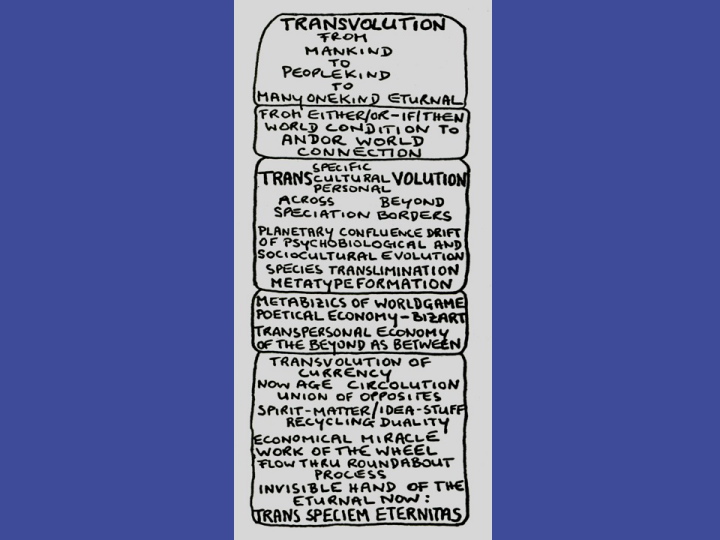 TRANSVOLUTION
FROM
MANKIND
TO
PEOPLEKIND
TO
MANYONEKIND ETURNAL
FROM EITHER/OR-IF/THEN
WORLD CONDITION TO
ANDOR WORLD
CONNECTION
SPECIFIC
TRANSCULTURALVOLUTION
PERSONAL
ACROSS BEYOND
SPECIATION BORDERS
PLANETARY CONFLUENCE DRIFT
OF PSYCHOBIOLOGICAL AND
SOCIOCULTURAL EVOLUTION
SPECIES TRANSLIMINATION
METATYPEFORMATION
METABIZICS OF WORLDGAME
POETICAL ECONOMY-BIZART
TRANSPERSONAL ECONOMY
OF THE BEYOND AS BETWEEN
TRANSVOLUTION OF
CURRENCY
NOW AGE CIRCOLUTION
UNION OF OPPOSITES
SPIRIT-MATTER/IDEA-STUFF
RECYCLING DUALITY
ECONOMICAL MIRACLE
WORK OF THE WHEEL
FLOW THRU ROUNDABOUT
PROCESS
INVISIBLE HAND OF THE
ETURNAL NOW:
TRANS SPECIEM ETERNITAS